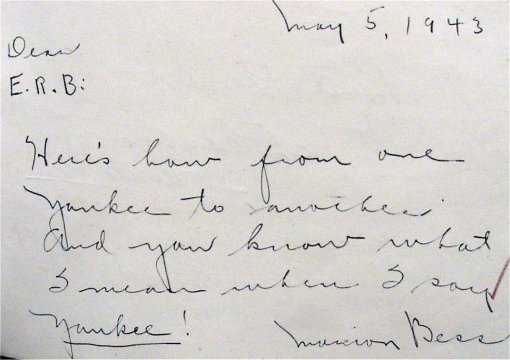 May 5, 1943
Dear
E.R.B:
Here's how from one
Yankee to another
And you know what
I mean when I say
Yankee!
Marion Bess